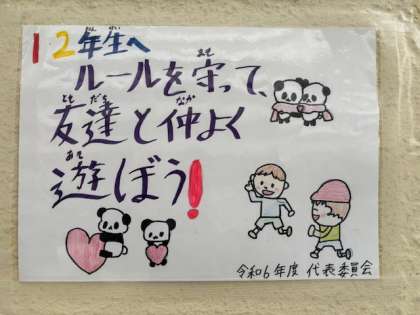 1 2年生へ
ルールを守って、
友達と仲よく
遊ぼう！
令和6年度 代表委員会